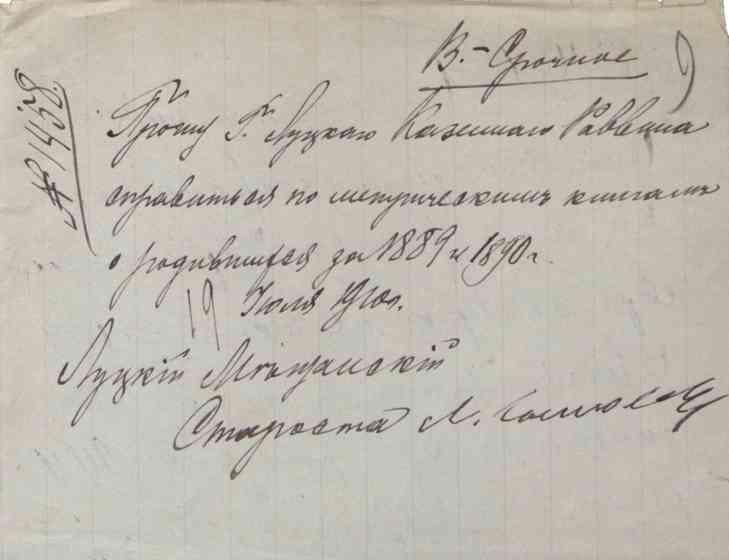 № 1458.
В.-Срочное
Прошу Г. Луцкаго Казеннаго Раввина
справиться по метрическимъ книгамъ
о родившихся за 1889 и 1890 г.
19 Июля 1910 г.
Луцкій Мѣщанскій
Староста А.